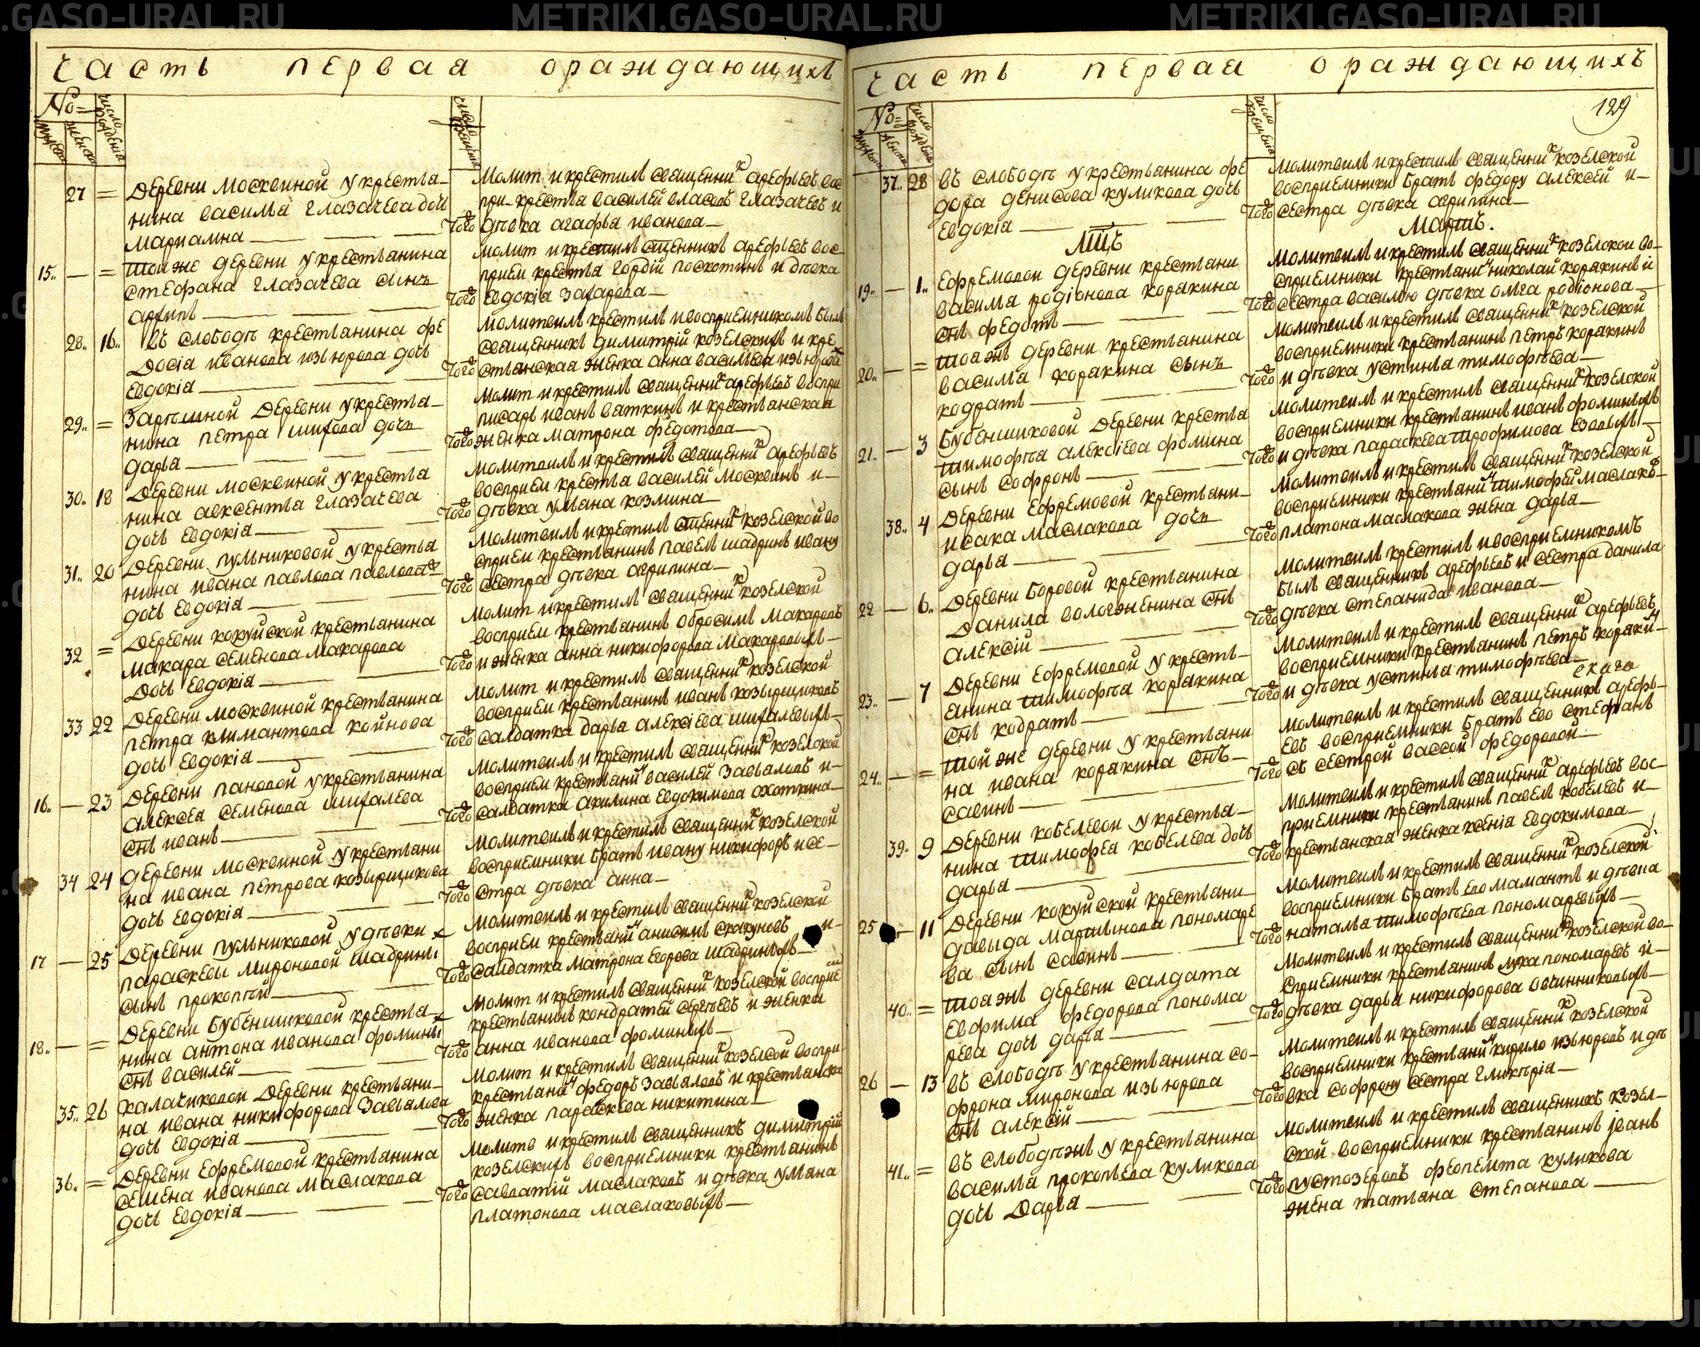 METRIKI.GASO-URAL.RU
METRIKI.GASO-URAL.RU
часть первая ораждающихъ
No
27 = деревни москвиной у крестья-
нина василья глазачева дочь
мариамна
молит и крестилъ священник арефьевъ вос
при крестья василей власовъ глазачевъ и
того девка агафья иванова
15 — = тоя же деревни у крестьянина
стефана глазачева сынъ
архипъ
молит и крестилъ сщенникъ арефьевъ вос
прием крестья гордей поскотинъ и девка
того евдокія захарова
28 16 въ слободе крестьянина фе
досія иванова изъюрова дочь
евдокія
молитвилъ крестилъ и восприемникомъ былъ
священникъ димитрій козелскихъ и кре
того стьянская женка анна васильева изъюрова
29 = зарычной деревни у крестья-
нина петра шихова дочь
дарья
молит и крестилъ священник арефьевъ воспри
писарь иванъ вяткинъ и крестьянская
того женка матрона федотова
30 18 деревни москвиной у крестья
нина авксентья глазачева
дочь евдокія
молитвилъ и крестилъ священник арефьевъ
восприем крестья василей москвинъ и
того девка ульяна козмина
31 20 деревни пульниковой у крестья
нина ивана павлова павлова
дочь евдокія
молитвилъ и крестилъ сщенник козелской во
сприем крестьянинъ павелъ шадринъ ивану
того сестра девка агрипина
32 = деревни кокуйской крестьянина
макара семенова макарова
дочь евдокія
молит и крестилъ священник козелской
восприем крестьянинъ обросимъ макаровъ
того и женка анна никифорова макаровыхъ
33 22 деревни москвиной крестьянина
петра климантова койнова
дочь евдокія
молит и крестилъ священник козелской
восприем крестьянинъ иванъ козырщиковъ
того салдатка дарья алексіева шихалевыхъ
16 — 23 деревни пановой у крестьянина
алексея семенова шихалева
снъ иванъ
молитвилъ и крестилъ священник козелской
восприем крестьянинъ василей завьяловъ и
того салдатка акилина евдокимова охоткина
34 24 деревни москвиной у крестьяни
на ивана петрова козырщикова
дочь евдокія
молитвилъ и крестилъ священник козелской
восприемники братъ ивану никифоръ и се-
того стра девка анна
17 — 25 деревни пульниковой у девки
параскевы мироновой шадриныхъ
сынъ прокопей
молитвилъ и крестилъ священник козелской
восприем крестьянинъ анисимъ скакуновъ и
того салдатка матрона егорова шадриныхъ
18 — = деревни бубенщиковой у крестья
нина антона иванова фоминых
снъ василей
молит и крестилъ священник козелской восприе
крестьянинъ кондратей сергеевъ и женка
того анна иванова фоминыхъ
35 26 калачиковой деревни крестьяни
на ивана никифорова завьялова
дочь евдокія
молит и крестилъ священник козелской воспри
крестьянинъ федоръ завьяловъ и крестьянска
того женка параскева никитина
36 = деревни ефремовой крестьянина
семена иванова маслакова
дочь евдокія
молитв и крестилъ священникъ димитрій
козелскихъ восприемники крестьянинъ
того савватій маслаковъ и девка ульяна
платонова маслаковыхъ
часть первая ораждающихъ
129
No
37 28 въ слободе у крестьянина фе
дора денисова куликова дочь
евдокія
молитвилъ и крестилъ священник козелской
восприемники братъ федору алексей и
того сестра девка агрипина
мсцъ мартъ.
19 — 1 ефремовой деревни крестьяни
василья родіонова корякина
снъ федотъ
молитвилъ и крестилъ священник козелской во-
сприемники крестьянинъ николай корякинъ и
того сестра василью девка олга родіонова
20 — = тоя жъ деревни крестьянина
василья корякина сынъ
кодратъ
молитвилъ и крестилъ священник козелской
восприемники крестьянинъ петръ корякинъ
того и девка устинья тимофеева
21 — 3 бубенщиковой деревни крестья
тимофея алексіева фомина
сынъ софронъ
молитвилъ и крестилъ священник козелской
восприемники крестьянинъ иванъ фоминыхъ
того и девка параскева трофимова
38 4 деревни ефремовой крестьяни-
исака маслакова дочь
дарья
молитвилъ и крестилъ священник козелской
восприемники крестьянинъ тимофей маслаковъ
того платона маслакова жена дарья
22 — 6 деревни боровой крестьянина
данила вологженина снъ
алексій
молитвилъ крестилъ и восприемникомъ
былъ священникъ арефьевъ и сестра данила
того девка степанида иванова
23 — 7 деревни ефремовой у кресть-
янина тимофея корякина
снъ кодратъ
молитвилъ и крестилъ священник арефьевъ
восприемники крестьянинъ петръ корякинъ
того и девка устинья тимофеева
24 — = той же деревни у крестьяни
на ивана корякина снъ
савинъ
молитвилъ и крестилъ священникъ арефь-
евъ восприемники братъ ево стефанъ
того съ сестрой вассой федоровой
39 9 деревни кобелевой у крестья-
нина тимофея кобелева дочь
дарья
молитвилъ и крестилъ священник арефьевъ вос-
приемники крестьянинъ павелъ кобелевъ и
того крестьянская женка ксенія евдокимова
25 — 11 деревни кокуйской крестьяни-
давыда мартынова пономаре
ва сынъ савинъ
молитвилъ и крестилъ священник козелской
восприемники братъ ево мамантъ и девка
того наталья тимофеева пономаревыхъ
40 = тоя жъ деревни салдата
евфима федорова понома
рева дочь дарья
молитвилъ и крестилъ священник козелской во-
сприемники крестьянинъ лука пономаревъ и
того девка дарья никифорова овчинниковыхъ
26 — 13 въ слободе у крестьянина со-
фрона миронова изъюрова
снъ алексій
молитвилъ и крестилъ священник козелской
восприемники крестьянинъ кирило изъюровъ и де
того вка софрону сестра гликерія
41 = въ слободе жъ у крестьянина
василья прокопьева куликова
дочь дарья
молитвилъ и крестилъ священникъ козел-
ской восприемники крестьянинъ іванъ
того пустозеровъ феопемта куликова
жена татьяна степанова